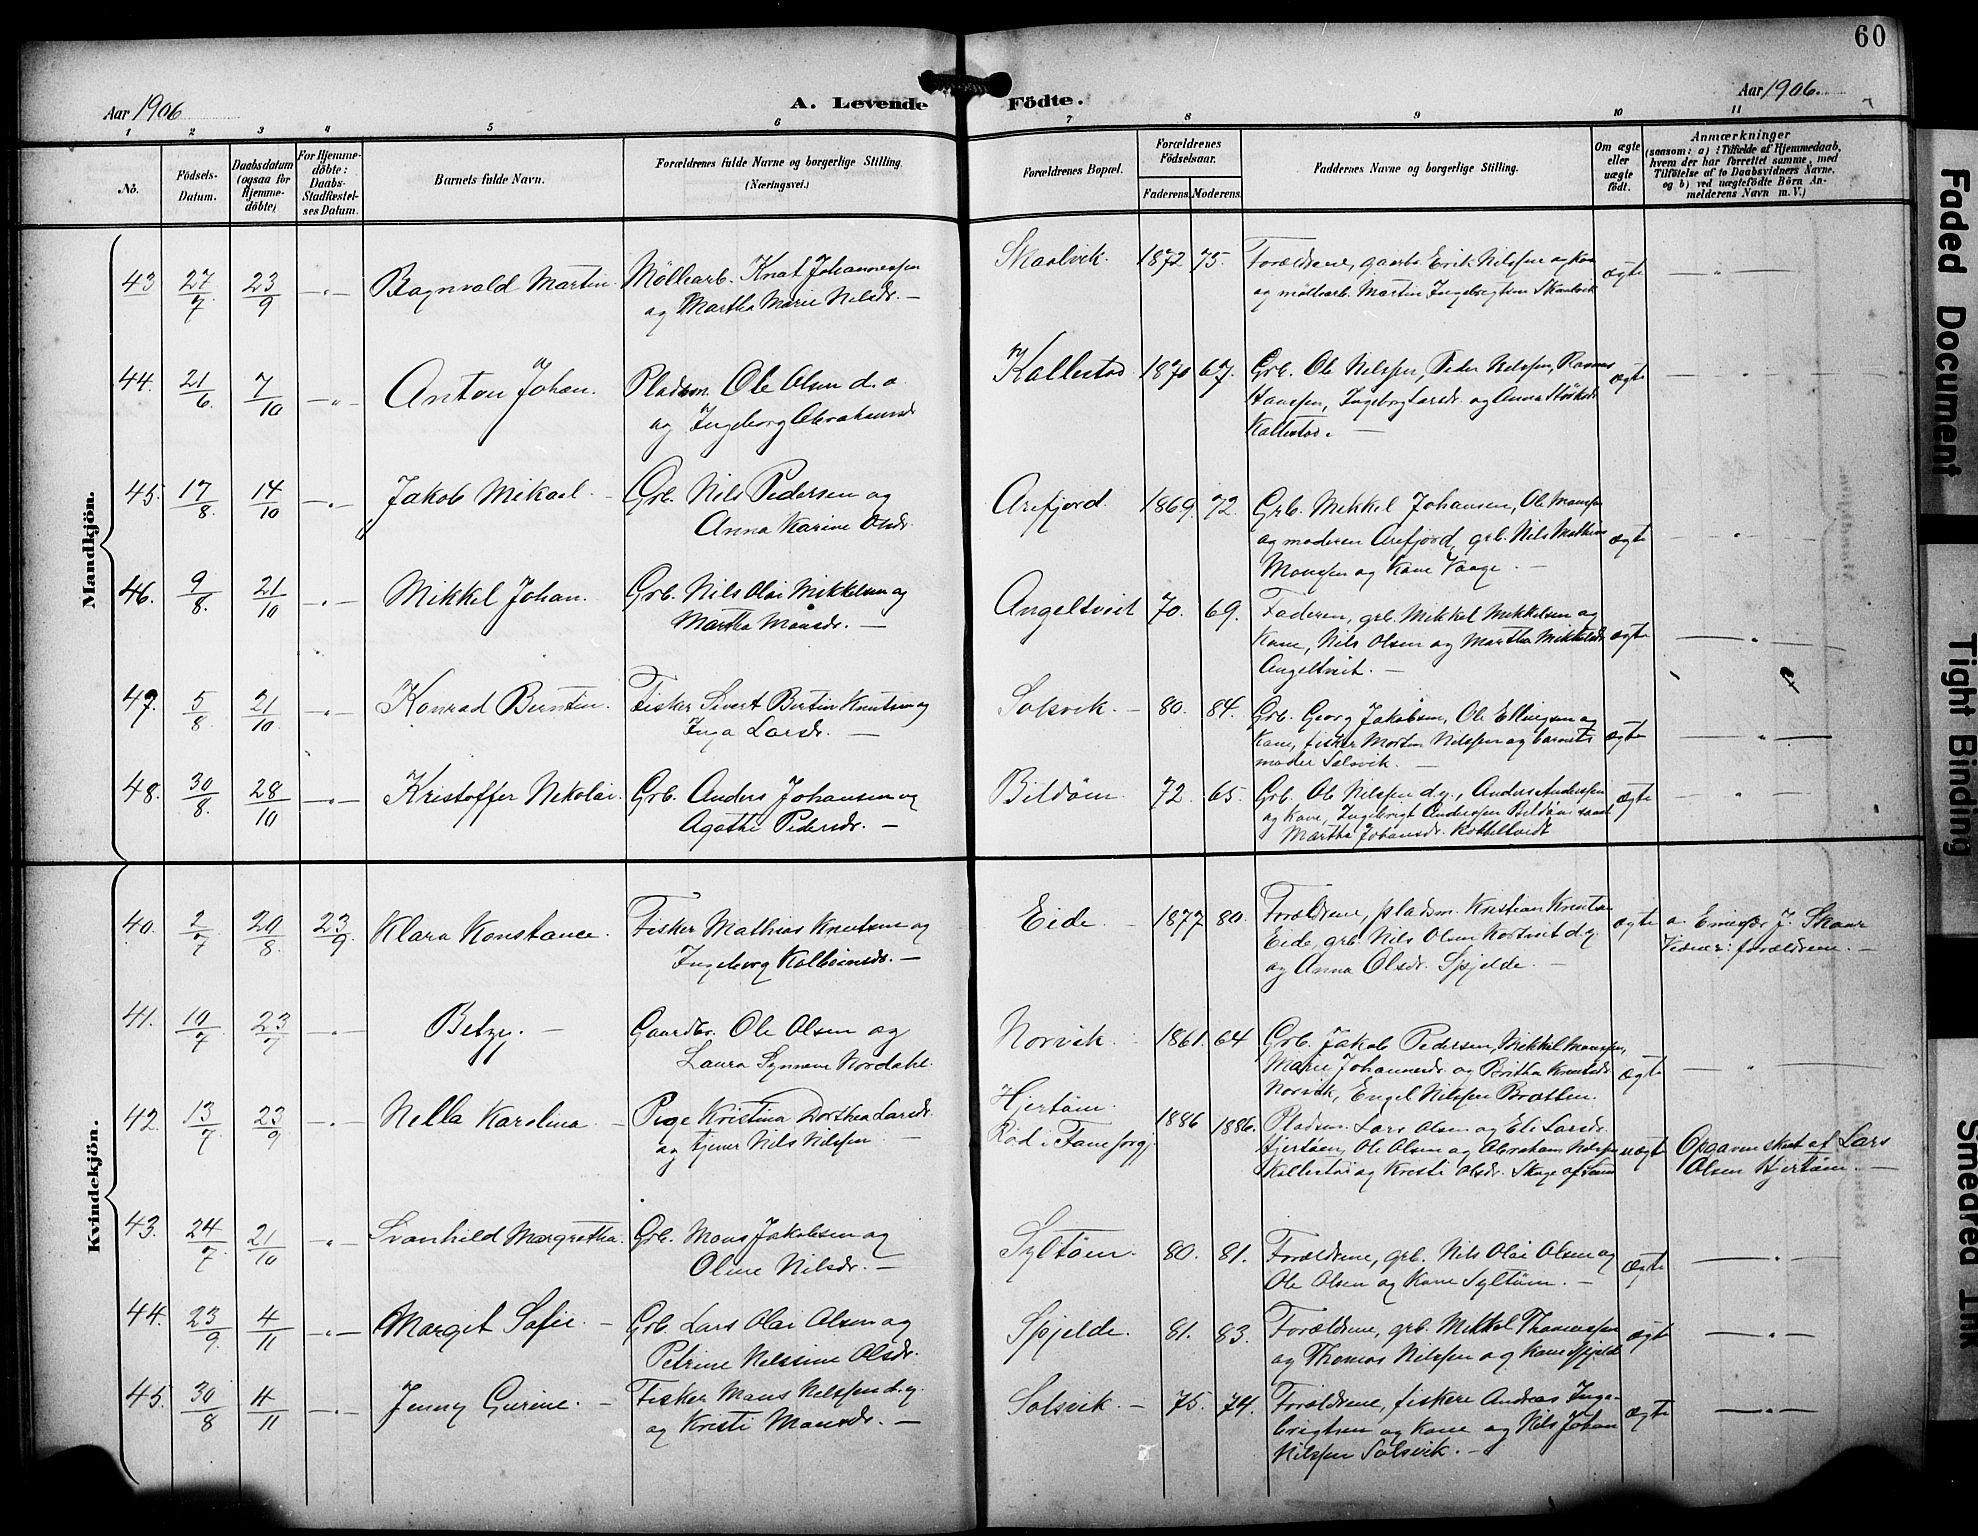 60
Aar 1906
A. Levende Födte.
Aar 1906.
1 2 3 4 5 6 7 8 9 10 11
No.
Födsels-Datum.
Daabsdatum (ogsaa for Hjemme-döbte)
For Hjemme-döbte: Daabs-Stadfæstel-ses Datum.
Barnets fulde Navn.
Forældrenes fulde Navne og borgerlige Stilling.
(Næringsvei.)
Forældrenes Bopæl.
Forældrenes Födselsaar.
Faderens. Moderens.
Faddernes Navne og borgerlige Stilling.
Om ægte eller uægte födt.
Anmærkninger
(saasom: a) i Tilfælde af Hjemmedaab,
hvem der har forrettet samme, med
Tilföielse af to Daabsvidners Navne,
og b) ved uægtefödte Börn An-
melderens Navn m. V.)
Mandkjön.
43 27/7 23/9 —"— Bagnvald Martin. Möllearb. Knut Johannessen
og Martha Marie Nilsdr. —
Skaalvik. 1872 75. Forældrene, gaarbr. Erik Nilssen og Kone
og möllearb. Martin Ingebrigtsen Skaalvik
ægte —"—
44. 21/6 7/10 —"— Anton Johan. Pladsm. Ole Olsen d.æ.
og Ingeborg Abrahamsdr
Kallestad 1870 67. Grb. Ole Nilssen, Peder Nilssen, Rasmus
Hanssen, Ingeborg Larsdr. og Anna
Kallestad. —
ægte —"—
45. 17/8. 14/10 —"— Jakob Mikael. — Grb. Nils Pedersen og
Anna Karine Olsdr.
Arefjord. 1869. 72. Grb. Mikkel Johansen, Ole Monssen
og moderen Arefjord, grb. Nils Mathias
Monssen og Kone Vaage. —
ægte —"—
46. 9/8. 21/10 —"— Mikkel Johan. Grb. Nils Olai Mikkelsen og
Martha Monsdr. —
Angeltveit 70. 69. Faderen, grb. Mikkel Mikkelsen og
Kone, Nils Olsen og Martha Mikkelsdr
Angeltveit. —
ægte —"—
47. 5/8. 21/10 —"— Konrad Berntin. Fisker Sivert Bertin Knutsen og
Inga Larsdr. —
Solsvik. — 80. 84. Grb. Georg Jakobsen, Ole Ellingsen og
Kone, fisker Morten Nilssen og barnets
moder Solsvik. —
ægte —"—
48. 30/8. 28/10 —"— Kristoffer Nikolai. Grb. Anders Johansen og
Agathe Pedersdr. —
Bildöen 72. 65. Grb. Ole Nilssen d.y., Anders Anderssen
og Kone, Ingebrigt Anderssen Bildöen samt
Martha Johansdr.
ægte —"—
Kvindekjön.
40. 2/7 20/8. 23/9. Klara Konstance. Fisker Mathias Knutsen og
Ingeborg Kolbeinsdr. —
Eide. — 1877 80. Forældrene, pladsm. Kristian Knutsen
Eide, grb. Nils Olsen d.y.
og Anna Olsdr. Spjelde. —
ægte a. J. Skaar
Vidner: forældrene. —
41. 10/7 23/7 —"— Betzy. — Gaardbr. Ole Olsen og
Laura Synneve Nordahl.
Norvik. — 1861. 64 Grb. Jakob Pedersen, Mikkel Monssen,
Marie Johannesdr. og Britha Knutsdr
Norvik, Engel Nilssen Bratten.
ægte —"—
42. 13/7 23/9 —"— Nella Karolina. — Pige Kristina Dorthea Larsdr.
og tjener Nils Nilssen —
Hjertöen.
Röd i Fane
1886 1886. Pladsm. Lars Olsen og Eli Larsdr.
Hjertöen, Ole Olsen og Abraham Nilssen
Kallestad og Kristi Olsdr. Skage af Sund
uægte Opgaven skrt af Lars
Olsen Hjertöen. —
43. 24/7. 21/10 —"— Svanhild Margretha. Grb. Mons Jakobsen og
Oline Nilsdr. —
Syltöen. 80. 81. Forældrene, grb. Nils Olai Olsen og
Ole Olsen og Kone Syltöen. —
ægte —"—
44. 23/9. 4/11 —"— Margit Sofie. — Grb. Lars Olai Olsen og
Petrine Nilssine Olsdr.
Spjelde. 81. 83. Forældrene, grb. Mikkel Thomassen
og Thomas Nilssen og Kone Spjelde
ægte —"—
45. 30/8 4/11 —"— Jenny Gurine. — Fisker Mons Nilssen d.y.
og Kristi Monsdr. —
Solsvik. — 75. 74. Forældrene, fiskere Andreas Inge-
brigtsen og Kone og Nils Johan
Nilssen Solsvik. —
ægte —"—
Faded Document
Tight Binding
Smeared Ink